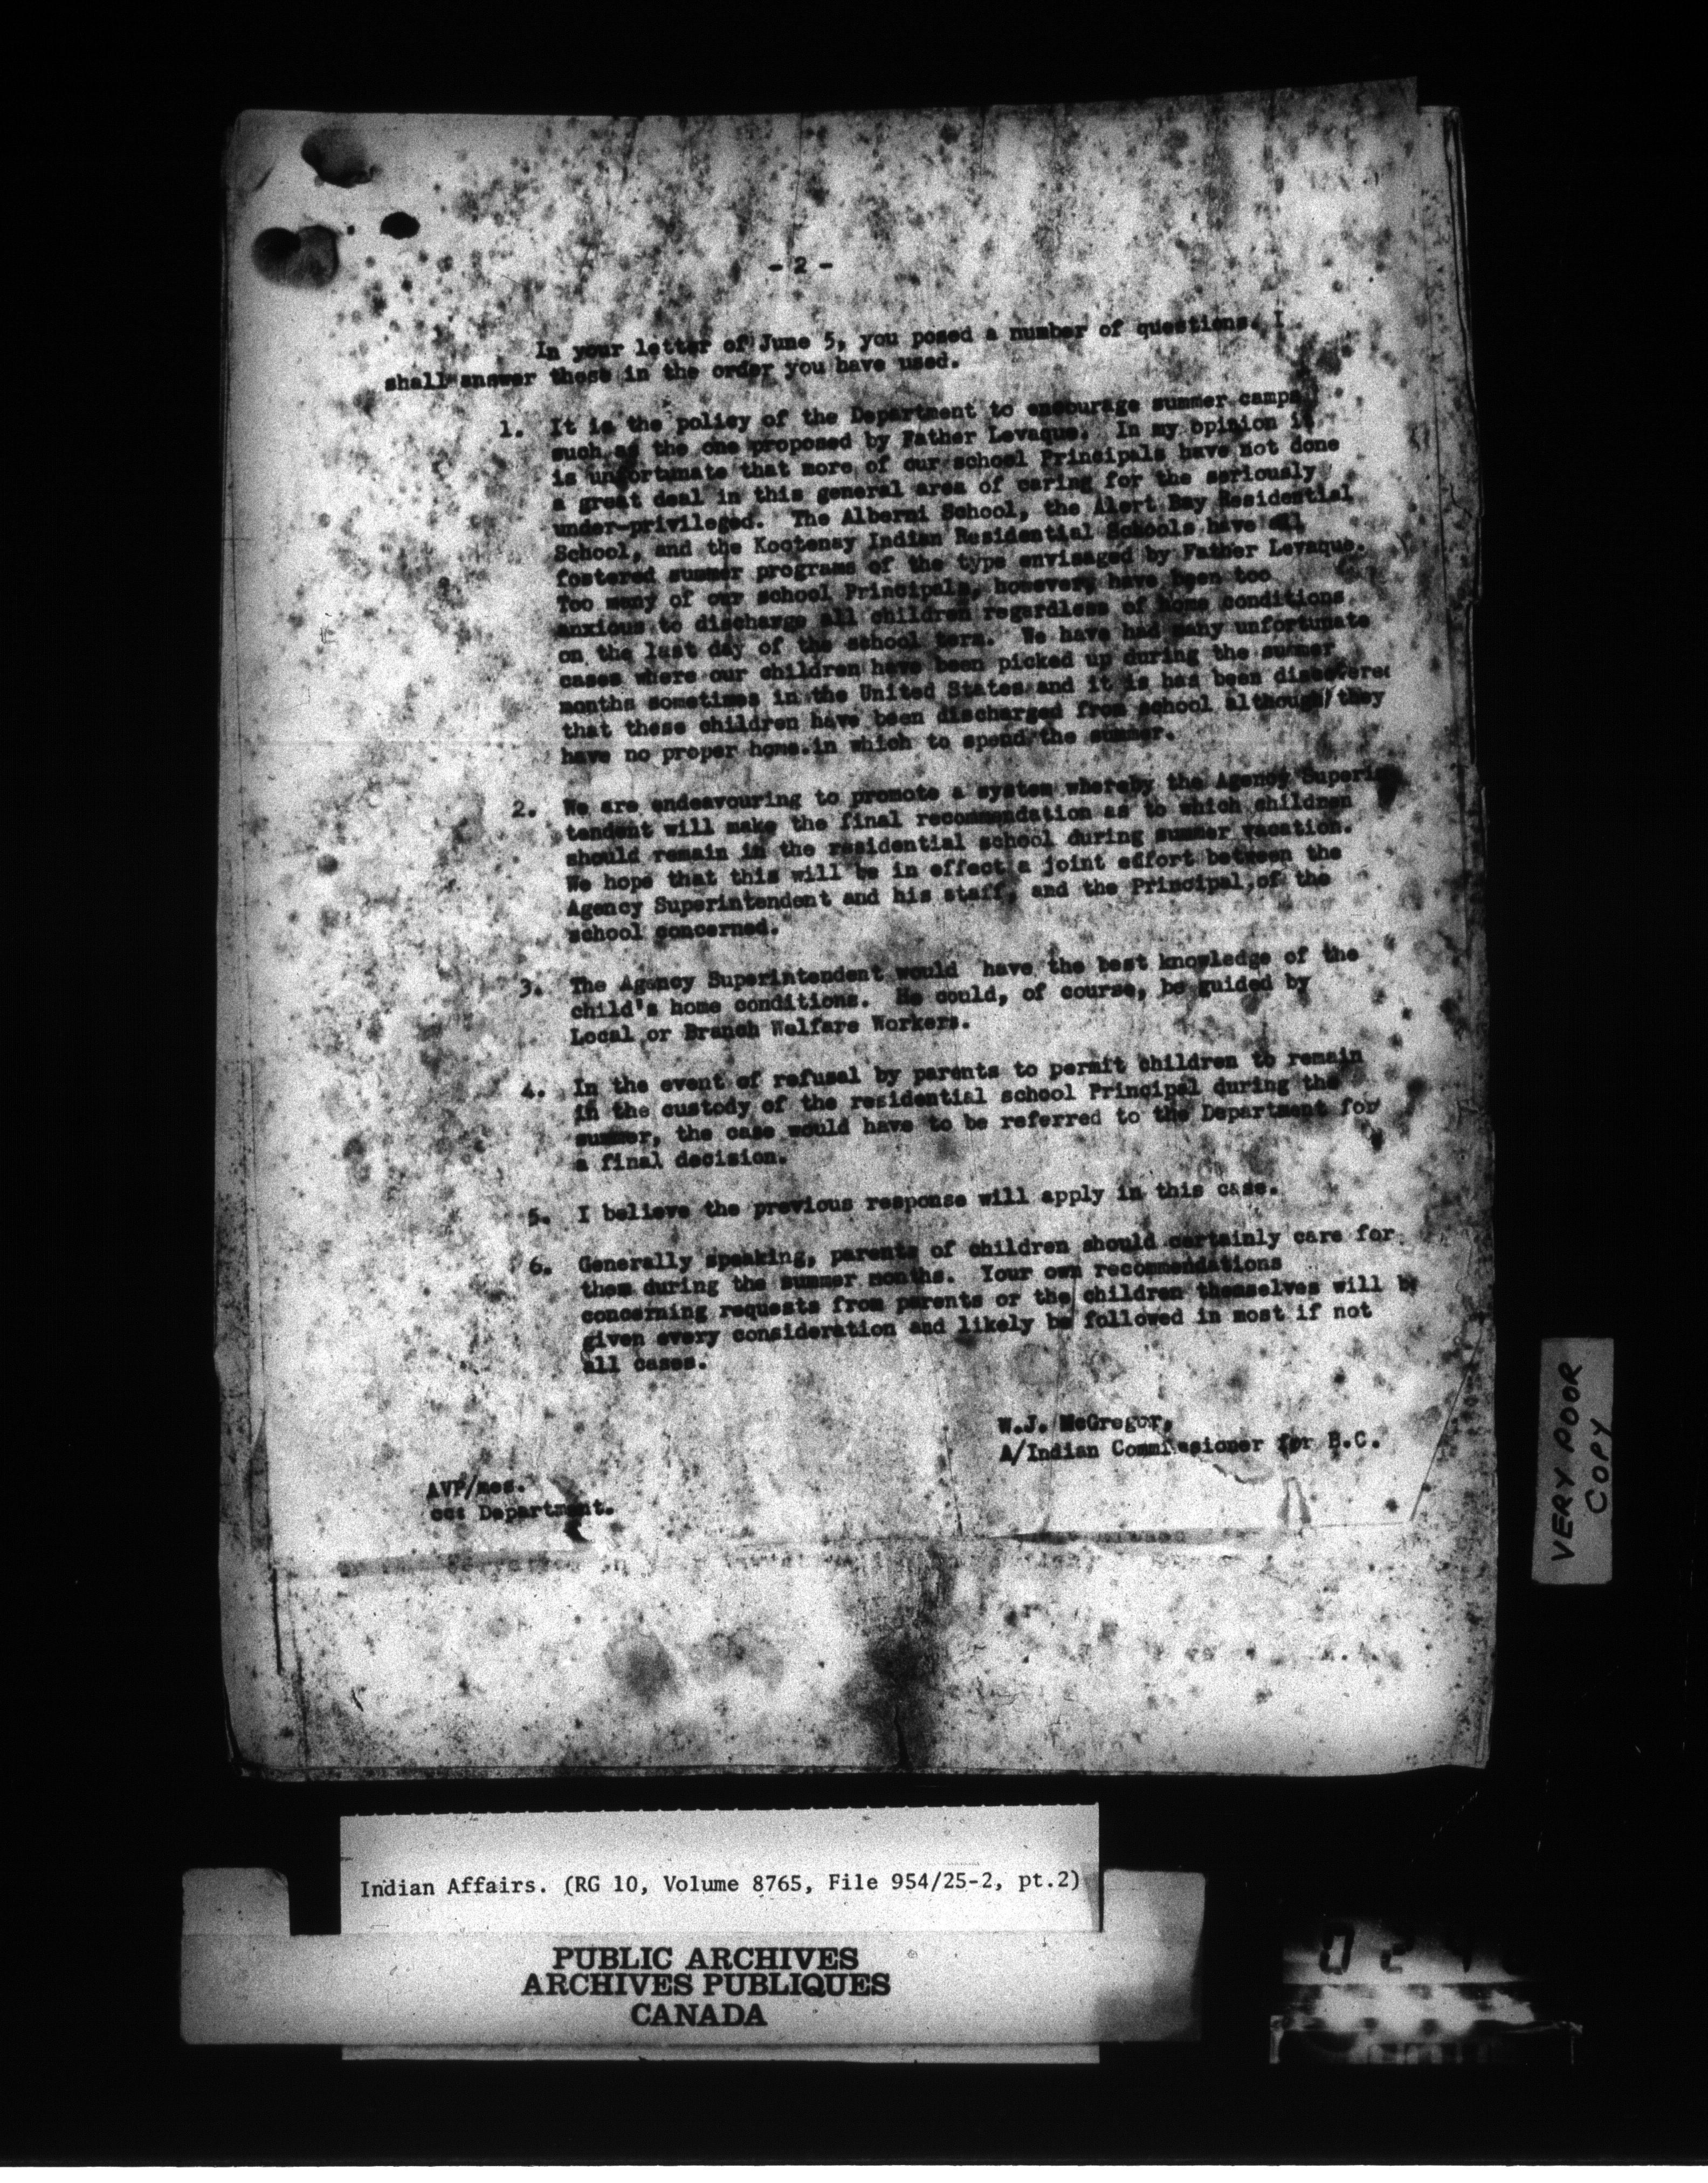 - 2 -
In your letter of June 5, you posed a number of questions. I
shall answer these in the order you have used.
1. It is the policy of the Department to encourage summer camps
such as the one proposed by Father Levaque. In my opinion it
is unfortunate that more of our school Principals have not done
a great deal in this general area of caring for the seriously
under-privileged. The Alberni School, the Alert Bay Residential
School, and the Kootenay Indian Residential Schools have all
fostered summer programs of the type envisaged by Father Levaque.
Too many of our school Principals, however, have been too
anxious to discharge all children regardless of home conditions
on the last day of the school term. We have had many unfortunate
cases where our children have been picked up during the summer
months sometimes in the United States and it is has been discovered
that these children have been discharged from school although they
have no proper home in which to spend the summer.
2. We are endeavouring to promote a system whereby the Agency Superin
tendent will make the final recommendation as to which children
should remain in the residential school during summer vacation.
We hope that this will be in effect a joint effort between the
Agency Superintendent and his staff, and the Principal of the
school concerned.
3. The Agency Superintendent would have the best knowledge of the
child's home conditions. He could, of course, be guided by
Local or Branch Welfare Workers.
4. In the event of refusal by parents to permit children to remain
in the custody of the residential school Principal during the
summer, the case would have to be referred to the Department for
a final decision.
5. I believe the previous response will apply in this case.
6. Generally speaking, parents of children should certainly care for
them during the summer months. Your own recommendations
concerning requests from parents or the children themselves will be
given every consideration and likely be followed in most if not
all cases.
W.J. McGregor,
A/Indian Commissioner for B.C.
AVP/mes.
cc: Department.
VERY POOR
COPY
Indian Affairs. (RG 10, Volume 8765, File 954/25-2, pt.2)
PUBLIC ARCHIVES
ARCHIVES PUBLIQUES
CANADA